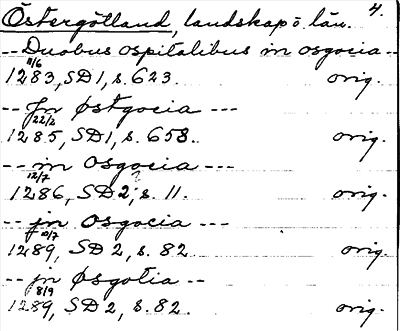 Östergötland, landskap o. län. 4.
-- Duobus ospitalibus in osgocia --
11/6
1283, SD1, s. 623. orig.
-- Jn østgocia ---
22/2
1285, SD1, s. 658. orig.
-- in osgocia ---
12/7 ?
1286, SD2, s. 11. orig.
-- jn osgocia ---
10/7
1289, SD 2, s. 82 orig.
-- jn øsgotia --
8/9
1289, SD 2, s. 82. orig.